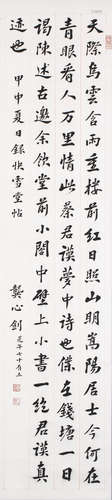 天際烏雲含雨重樓前紅日照山明嵩陽居士今何在
青眼看人萬里情此蔡君謨詩也僕在錢塘一日
謁陳述古邀余飲堂前小閣中壁上小書一絕君謨真
迹也 甲申夏日錄快雪堂帖
龔心釗 是年七十有五